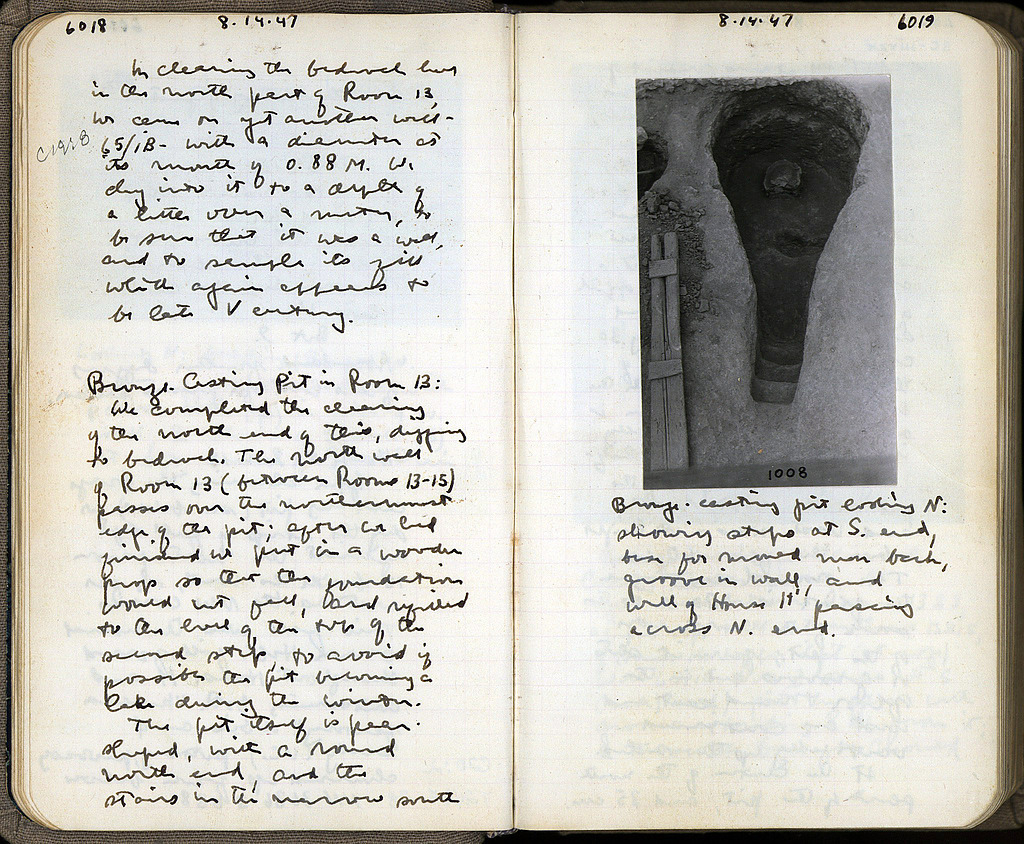 6018
8·14·47
In clearing the bedrock here
in the north part of Room 13,
we came on yet another well-
C1928
65/IB- with a diameter at
its mouth of 0.88 M. We
dug into it to a depth of
a little over a meter, to
be sure that it was a well,
and to sample its fill
which again appears to
be late V century.
Bronze-Casting Pit in Room 13:
We completed the clearing
of the north end of this, digging
to bedrock. The north wall
of Room 13 (between Rooms 13-15)
passes over the northernmost
edge of the pit; after we had
finished we put in a wooden
prop so that the foundation
would not fall, and refilled
to the level of the top of the
second step, to avoid if
possible the pit becoming a
lake during the winter.
The pit itself is pear-
shaped, with a round
north end, and the
stairs in the narrow south
8·14·47
6019
1008
Bronze-casting pit looking N:
showing steps at S. end,
base for mould near back,
groove in wall, and
wall of House H passing
across N. end.